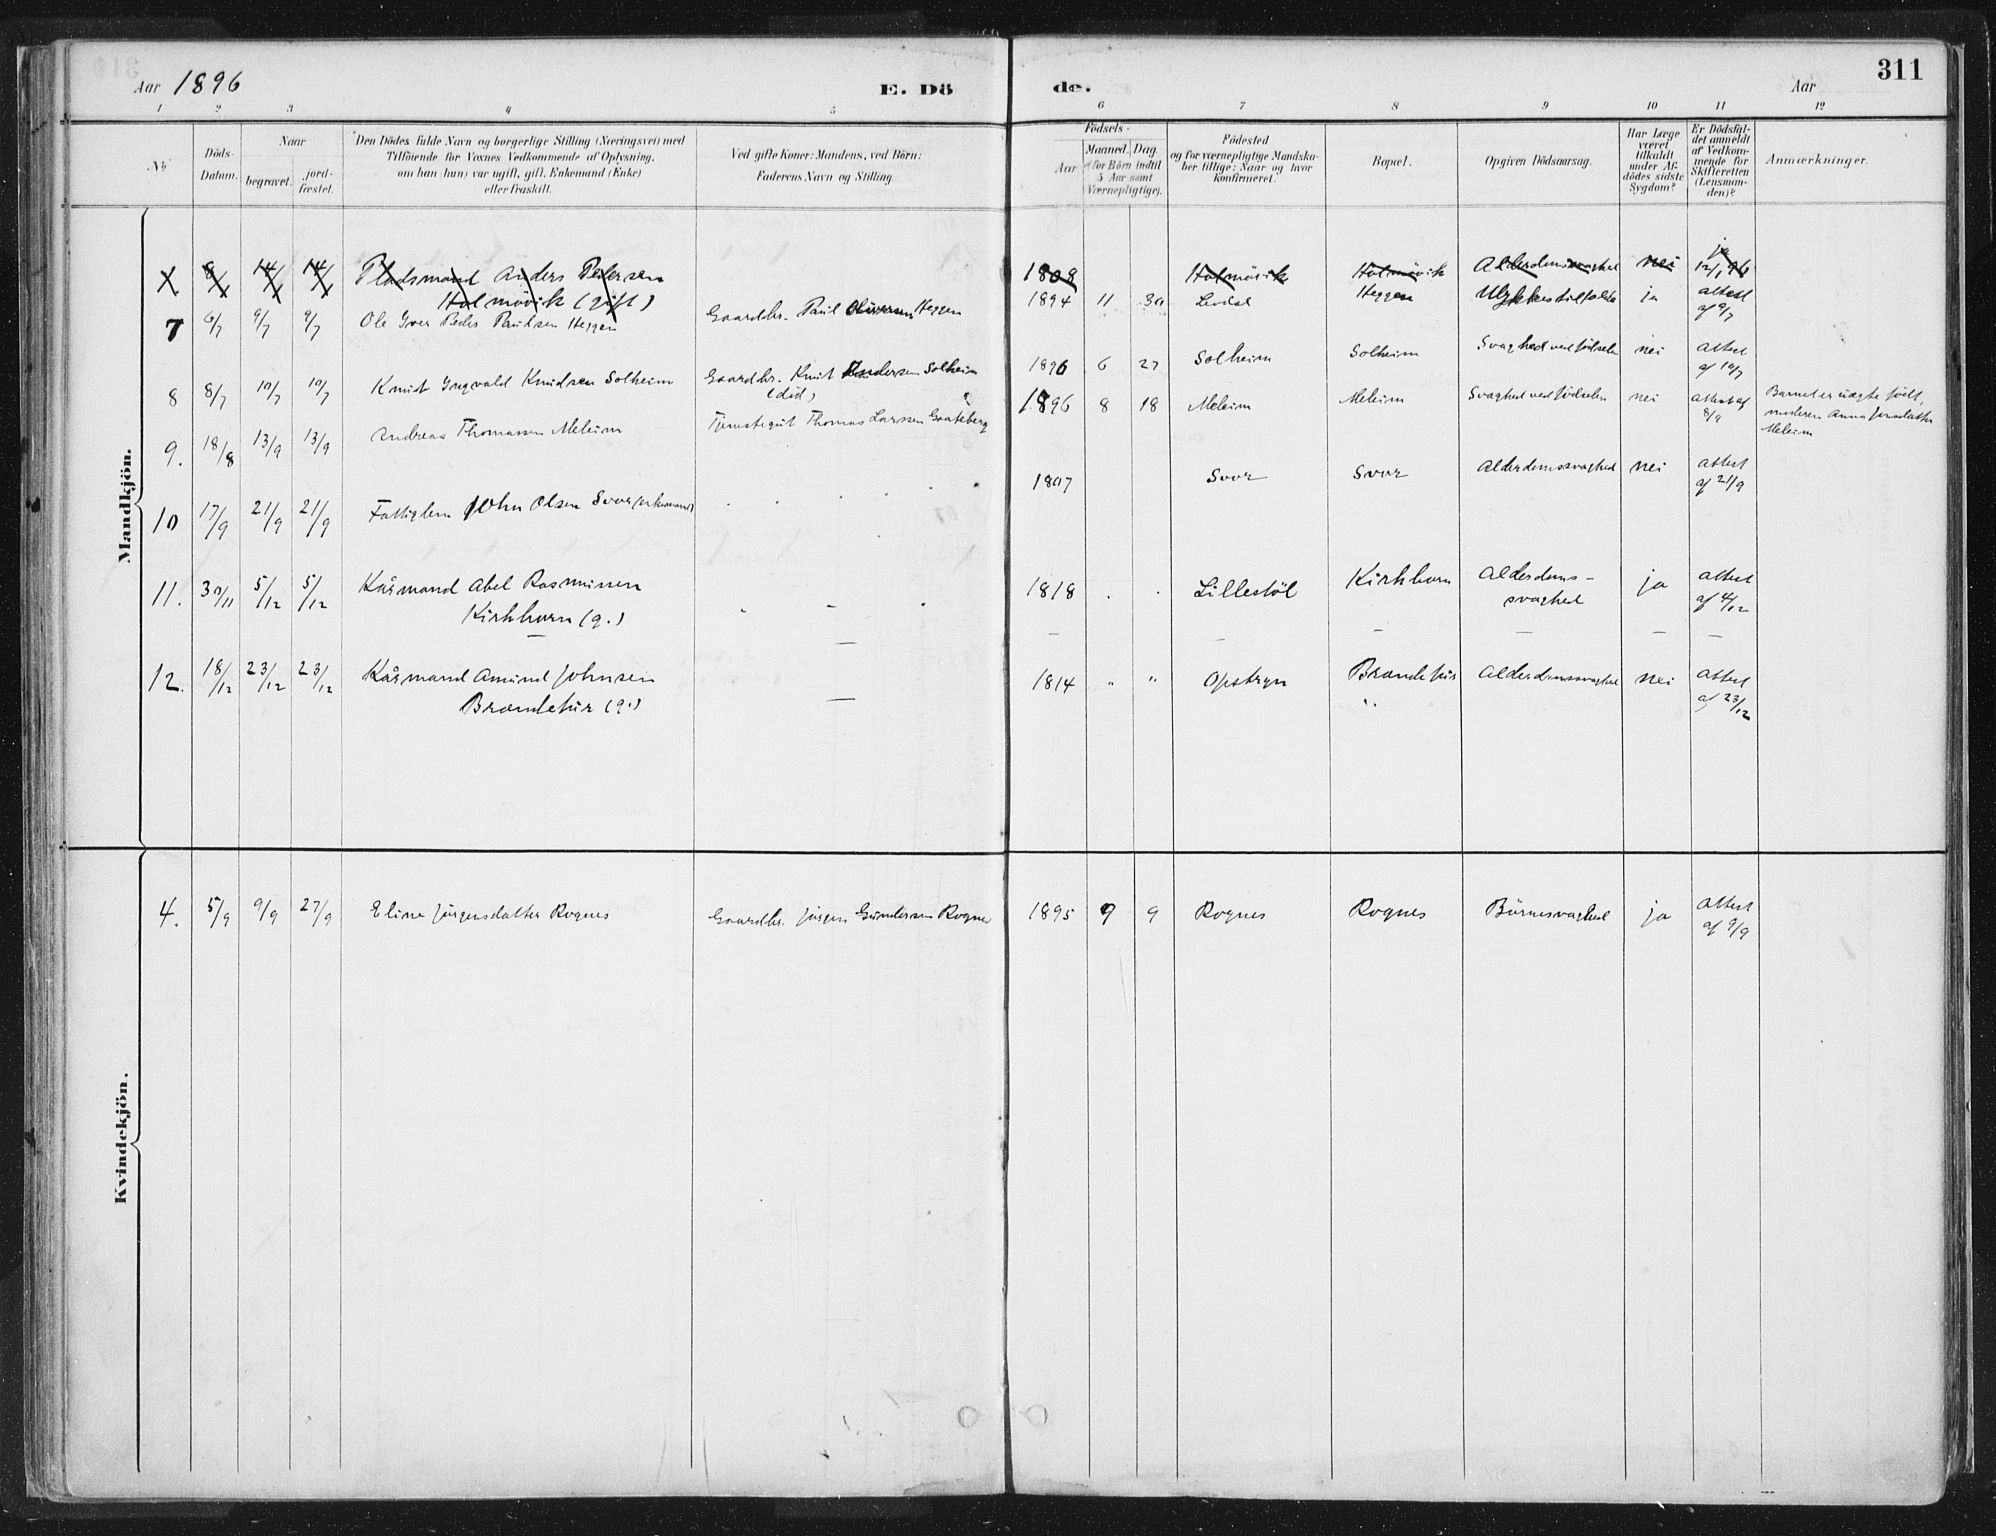 Aar 1896
E. Dö
de.
Aar
311
1 2 3 4 5 6 7 8 9 10 11 12
No
Döds-Datum.
Naar
begravet.
jord-fæstet.
Den Dödes fulde Navn og borgerlige Stilling (Næringsvei) med
Tilföiende for Voxnes Vedkommende af Oplysning,
om han (hun) var ugift, gift, Enkemand (Enke)
eller fraskilt.
Ved gifte Koner: Mandens, ved Börn:
Faderens Navn og Stilling.
Födsels-
Aar
Maaned. Dag.
(for Börn indtil
5 Aar samt
Værnepligtige).
Födested
og for værnepligtige Mandska-
ber tillige: Naar og hvor
konfirmeret.
Bopæl.
Opgiven Dödsaarsag.
Har Læge
været
tilkaldt
under Af-
dödes sidste
Sygdom?
Er Dödsfal-
det anmeldt
af Vedkom-
mende for
Skifteretten
(Lensman-
den)?
Anmærkninger.
Mandkjön.
8/1 14/1 14/1 Pladsmand Anders Pedersen
Holmövik (gift)
1808 Holmövik Holmövik Alderdomssvaghed nei ja 12/1 96
7 6/7 9/7 9/7 Ole Iver Peder Paulsen Heggen Gaardbr. Paul Oliversen Heggen 1894 11 30 Heggen Ulykkestilfælde ja attest af 9/7
8 8/7 10/7 10/7 Knut Ingvald Knudsen Solheim Gaardbr. Knut Andersen Solheim
(död)
1896 6 27 Solheim Solheim Svaghed ved födselen nei attest af 10/7
9. 18/8 13/9 13/9 Andreas Thomassen Meleim Tjenestegut Thomas Larssen Gaateberg 1896 8 18 Meleim Meleim Svaghed ved födselen nei attest af 8/9 Barnet er uægte født,
moderen Anna Jensdatter
Meleim
10 17/9 21/9 21/9 Fattiglem John Olsen Svor (enkemand) 1807 Svor Svor Alderdomssvaghed nei attest af 21/9
11. 30/11 5/12 5/12 Kårmand Abel Rasmussen
Kirkhorn (g.)
1818 Lillestöl Kirkhorn Alderdoms-
svaghed ja attest af 4/12
12. 18/12 23/12 23/12 Kårmand Amund Johnsen
Brandehir (g.)
1814 " " Opstryn Alderdomssvaghed nei attest af 23/12
Kvindekjön.
4. 5/9 9/9 27/9 Eline Jörgensdatter Rognes Gaardbr. Jörgen Gundersen Rognes 1895 9 9 Rognes Rognes Börnesvaghed ja attest af 9/9